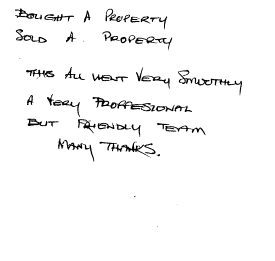 BOUGHT A PROPERTY
SOLD A PROPERTY
THIS ALL WENT VERY SMOOTHLY
A VERY PROFFESIONAL
BUT FRIENDLY TEAM
MANY THANKS.